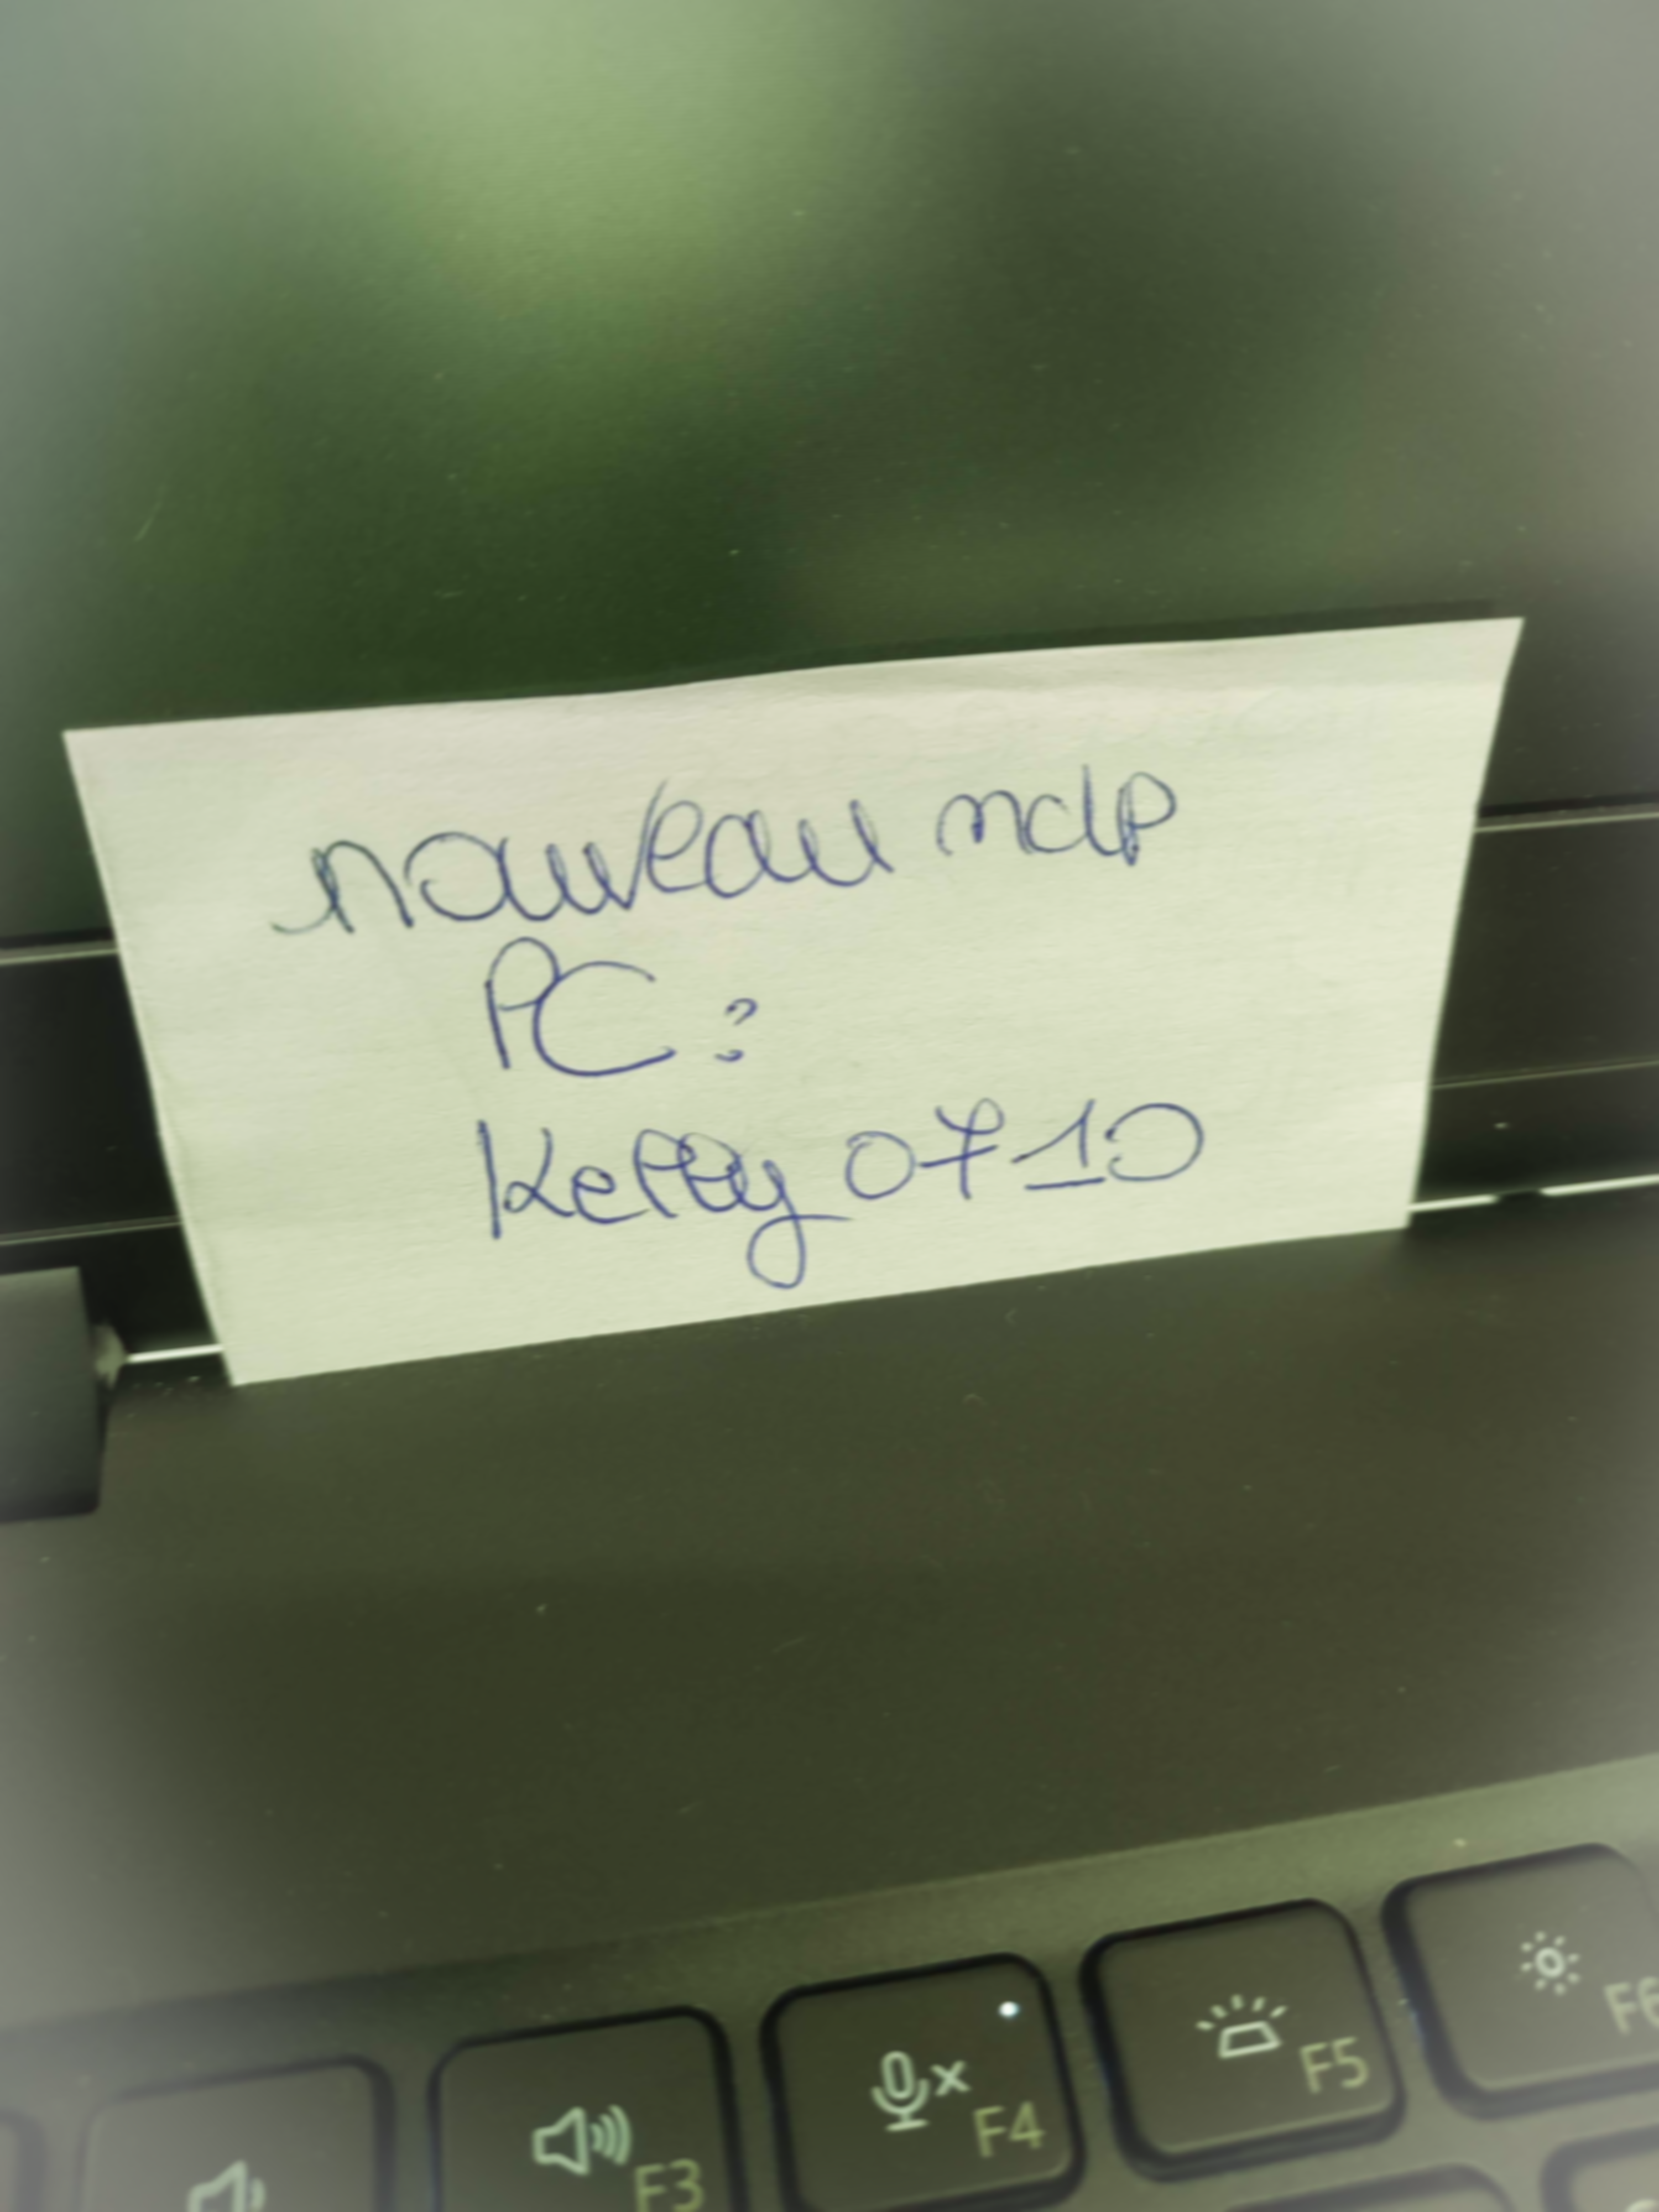 nouveau mdp
PC :
Kelly 0710
F3
F4
F5
F6